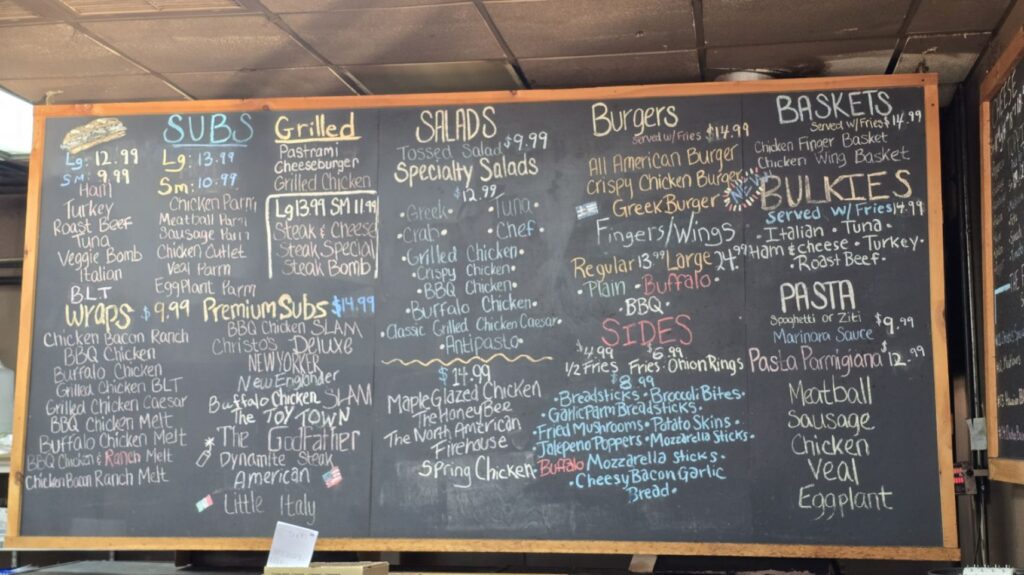 Lg: 12.99
Sm: 9.99
Ham
Turkey
Roast Beef
Tuna
Veggie Bomb
Italian
BLT
SUBS
Lg: 13.99
Sm: 10.99
Chicken Parm
Meatball Parm
Sausage Parm
Chicken Cutlet
Veal Parm
Eggplant Parm
Grilled
Pastrami
Cheeseburger
Grilled Chicken
Lg 13.99 SM 11.99
Steak & Cheese
Steak Special
Steak Bomb
Wraps $9.99
Chicken Bacon Ranch
BBQ Chicken
Buffalo Chicken
Grilled Chicken BLT
Grilled Chicken Caesar
BBQ Chicken Melt
Buffalo Chicken Melt
BBQ Chicken & Ranch Melt
Chicken Bacon Ranch Melt
Premium Subs $14.99
BBQ Chicken SLAM
Christo's Deluxe
NEW YORKER
New Englander
Buffalo Chicken SLAM
The TOY TOWN
The GodFather
Dynamite Steak
American
Little Italy
SALADS
Tossed Salad $9.99
Specialty Salads
$12.99
• Greek • Tuna •
• Crab • Chef •
• Grilled Chicken •
• Crispy Chicken •
• BBQ Chicken •
• Buffalo Chicken •
• Classic Grilled Chicken Caesar •
• Antipasto •
$14.99
Maple Glazed Chicken
The Honey Bee
The North American
Firehouse
Spring Chicken
Burgers
Served w/Fries $14.99
All American Burger
Crispy Chicken Burger New
Greek Burger
Fingers/Wings
Regular 13.99 Large 24.99
• Plain • Buffalo •
BBQ •
SIDES
$4.99 $6.99
1/2 Fries Fries • Onion Rings
$8.99
• Breadsticks • Broccoli Bites •
• Garlic Parm Breadsticks •
• Fried Mushrooms • Potato Skins •
Jalepeno Poppers • Mozzarella Sticks •
Buffalo Mozzarella Sticks •
• Cheesy Bacon Garlic
Bread •
BASKETS
Served w/Fries $14.99
Chicken Finger Basket
Chicken Wing Basket
BULKIES
Served w/ Fries 14.99
• Italian • Tuna •
Ham & cheese • Turkey •
• Roast Beef •
PASTA
Spaghetti or Ziti $9.99
Marinara Sauce
Pasta Parmigiana $12.99
Meatball
Sausage
Chicken
Veal
Eggplant